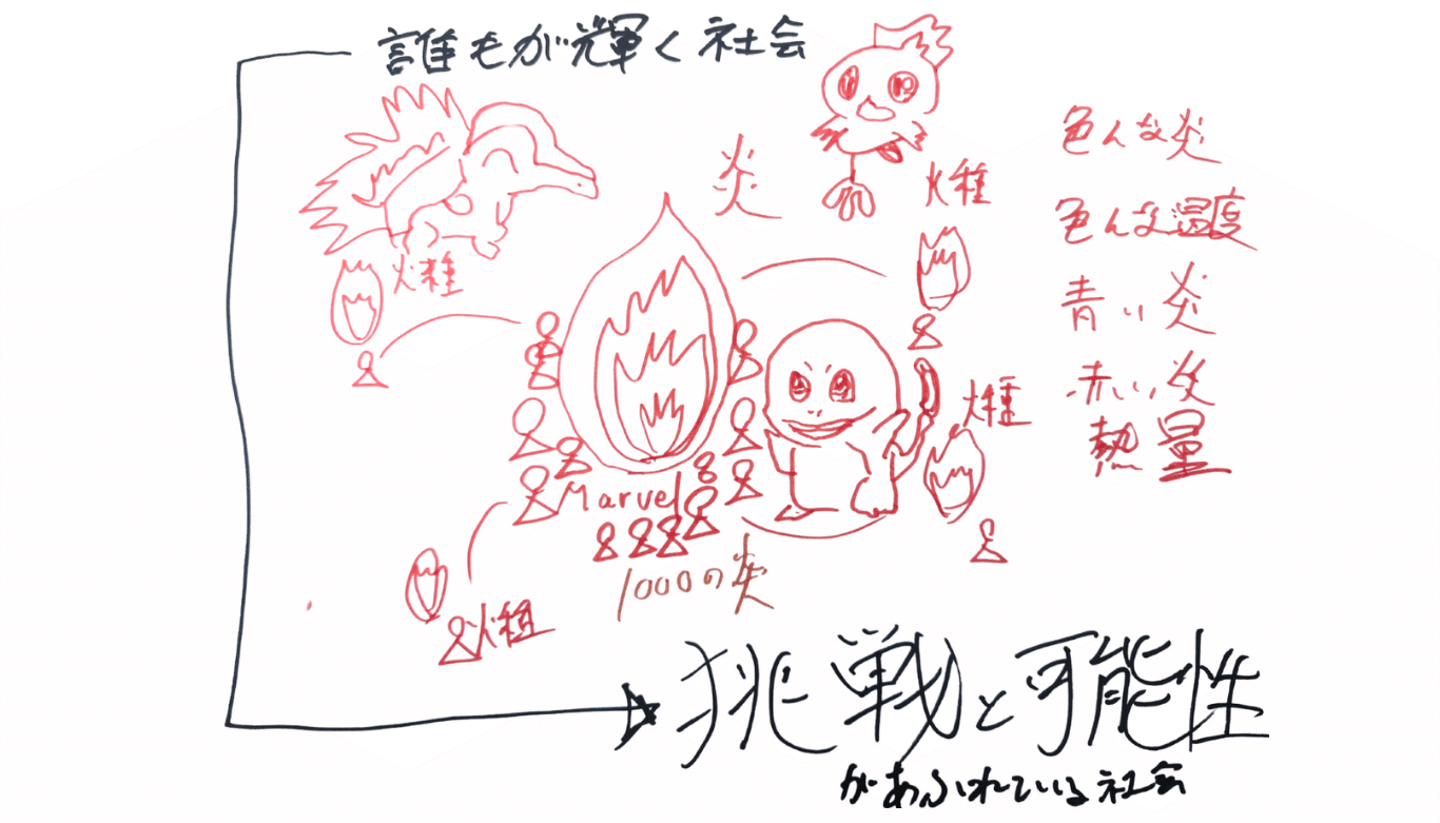 誰もが輝く社会
炎
火種
色んな炎
色んな温度
火種
青い炎
赤い炎
火種
熱量
Marvel
1000の炎
火種
挑戦と可能性
があふれている社会